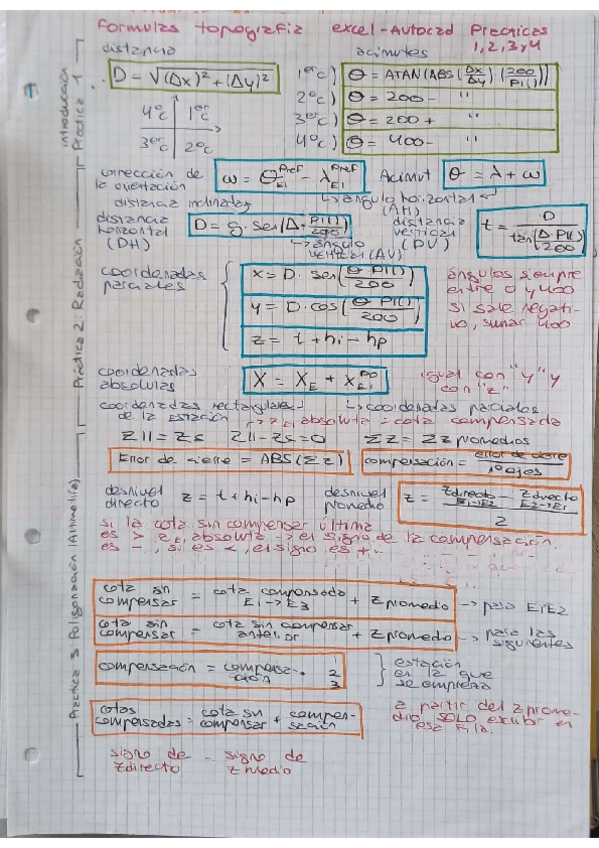 Formulas topografia excel-Autocad Practicas 1,2,3 y 4
introducción
Práctica 1
distancia
D = √(Δx)² + (Δy)²
4ºc 1erc
3erc 2ºc
acimutes
1erc) θ = ATAN(ABS(Δx/Δy)·(200/PI()))
2ºc) θ = 200 - "
3erc) θ = 200 + "
4ºc) θ = 400 - "
Práctica 2: Radiación
corrección de la orientación
ω = θ E1 Pref - λ E1 Pref
Acimut θ = λ + ω
↳ ángulo horizontal (AH)
distancias inclinadas
distancia horizontal (DH)
D = g · sen(Δ · PI()/200)
↳ ángulo vertical (AV)
distancia vertical (DV)
t = D / tan(Δ·PI()/200)
coordenadas parciales
x = D · sen(θ · PI()/200)
y = D · cos(θ · PI()/200)
z = t + hi - hp
ángulos siempre
entre 0 y 400
si sale negati-
vo, sumar 400
coordenadas absolutas
X = XE + xE1 Po
igual con "y" y
con "z"
coordenadas rectangulares
de la estación
↳ coordenadas parciales
Práctica 3: Poligonación (Altimetría)
→ ZE1 absoluta = cota compensada
Z11 = Zs Z11 - Zs = 0 Σz = Σz promedios
Error de cierre = ABS(Σz)
compensación = error de cierre / nº ejes
desnivel directo z = t + hi - hp
desnivel promedio z = (zdirecto E1→E2 - zdirecto E2→E1) / 2
si la cota sin compensar última
es > ZE1 absoluta → el signo de la compensación
es -, si es <, el signo es +.
cota sin compensar = cota compensada E1→E3 + z promedio → para E1E2
cota sin compensar = cota sin compensar anterior + z promedio → para las siguientes
compensación = compensación · 1 2 3
} estación
en la que
se empieza
cotas compensadas = cota sin compensar + compensación
a partir del z prome-
dio SOLO escribir en
esa fila.
signo de zdirecto = signo de z medio